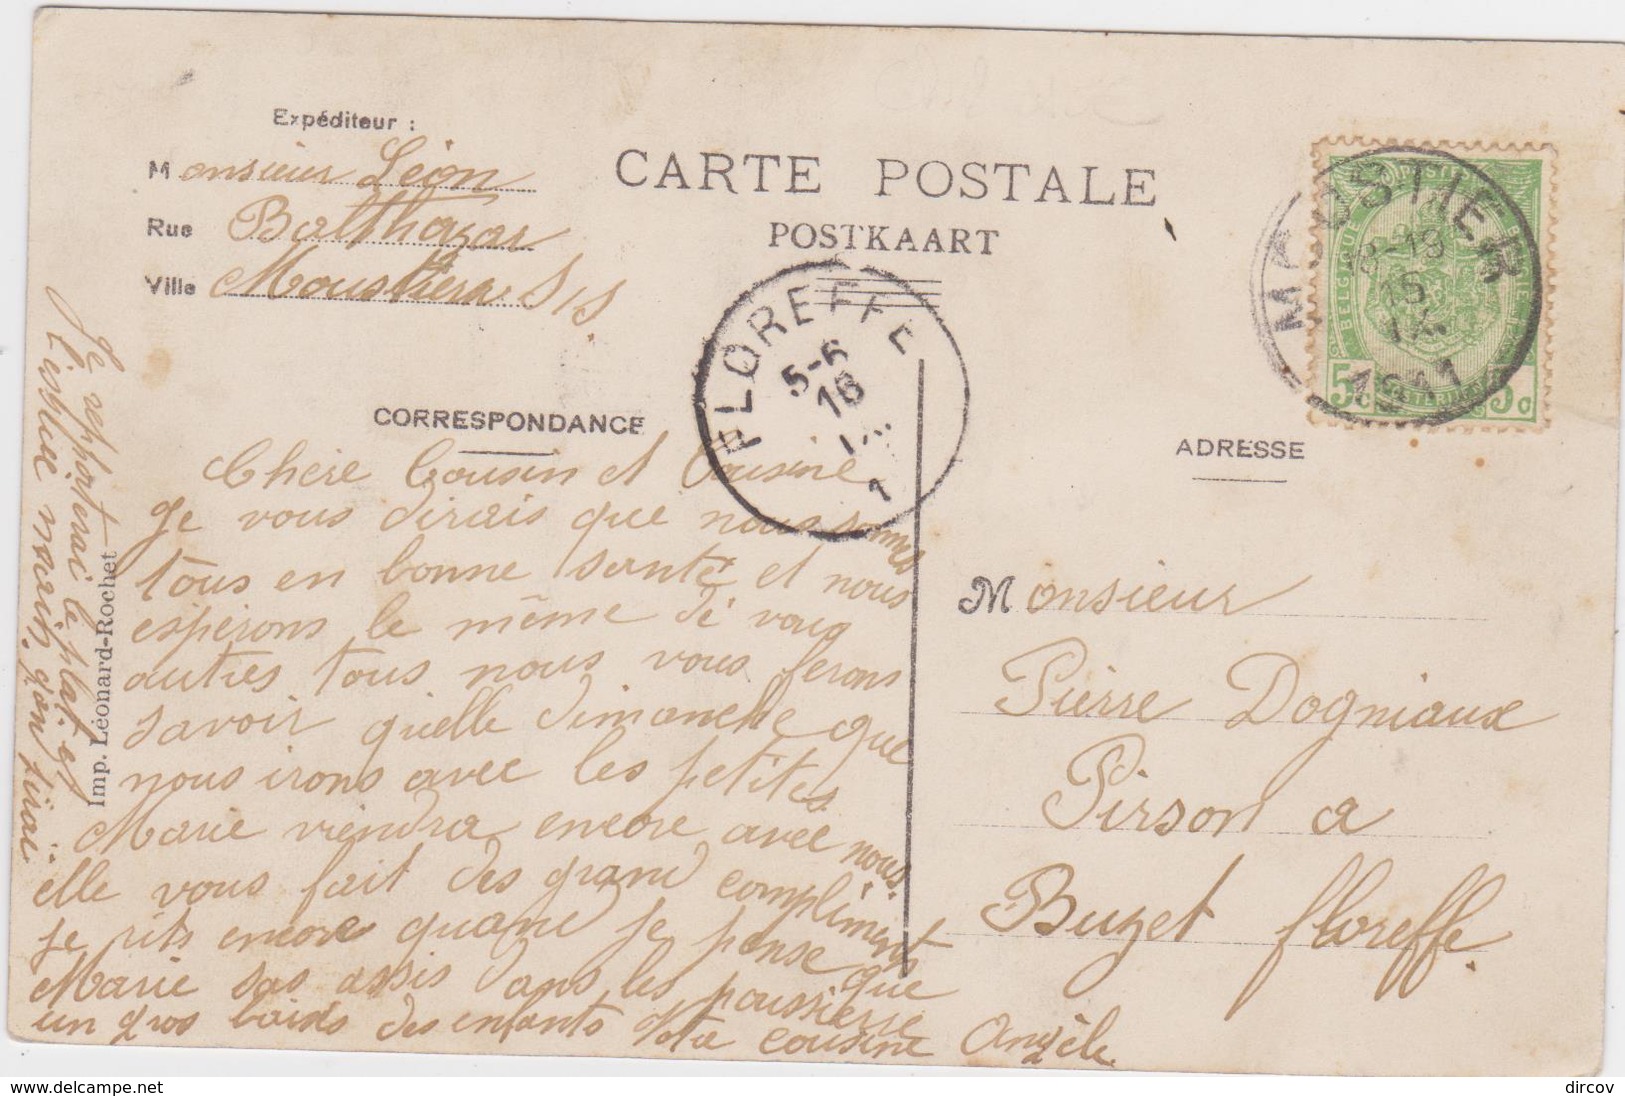 Expéditeur :
Monsieur Léon
Rue Balthazar
Ville Moustier S/S.
CARTE POSTALE
POSTKAART
MOUSTIER
18-19
15
IX
1911
BELGIQUE
5c
5c
FLOREFFE
5-6
16
IX
1
CORRESPONDANCE
ADRESSE
Chère Cousin et Cousine
Je vous dirais que nous sommes
tous en bonne santé et nous
espérons le même de vous
autres tous nous vous ferons
savoir quelle dimanche que
nous irons avec les petites
Marie viendra encore avec nous.
elle vous fait des grand compliments
je rits encore quand je pense que
Marie sas assis dans les poussierre
un gros baids des enfants de ta cousine Angèle.
Je repporterai le plat et
l'essue main qon
Imp. Léonard-Rochet
Monsieur
Pierre Dogniaux
Pirson a
Buzet floreffe.
www.delcampe.net
dircov